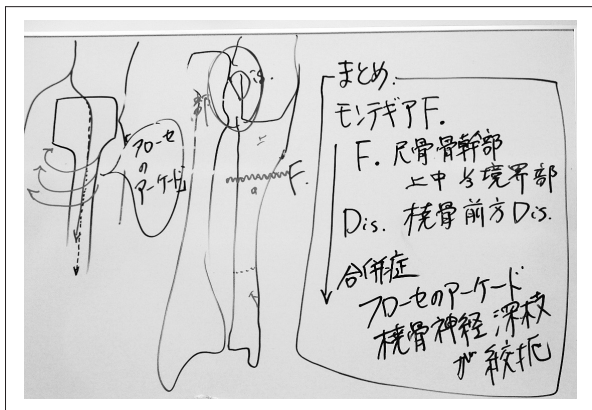 フローセ
の
アーケード
is.
部
F.
a
まとめ.
モンテギアF.
F. 尺骨骨幹部
上中1/3境界部
Dis. 橈骨前方Dis.
合併症
フローセのアーケード
橈骨神経深枝
が絞扼